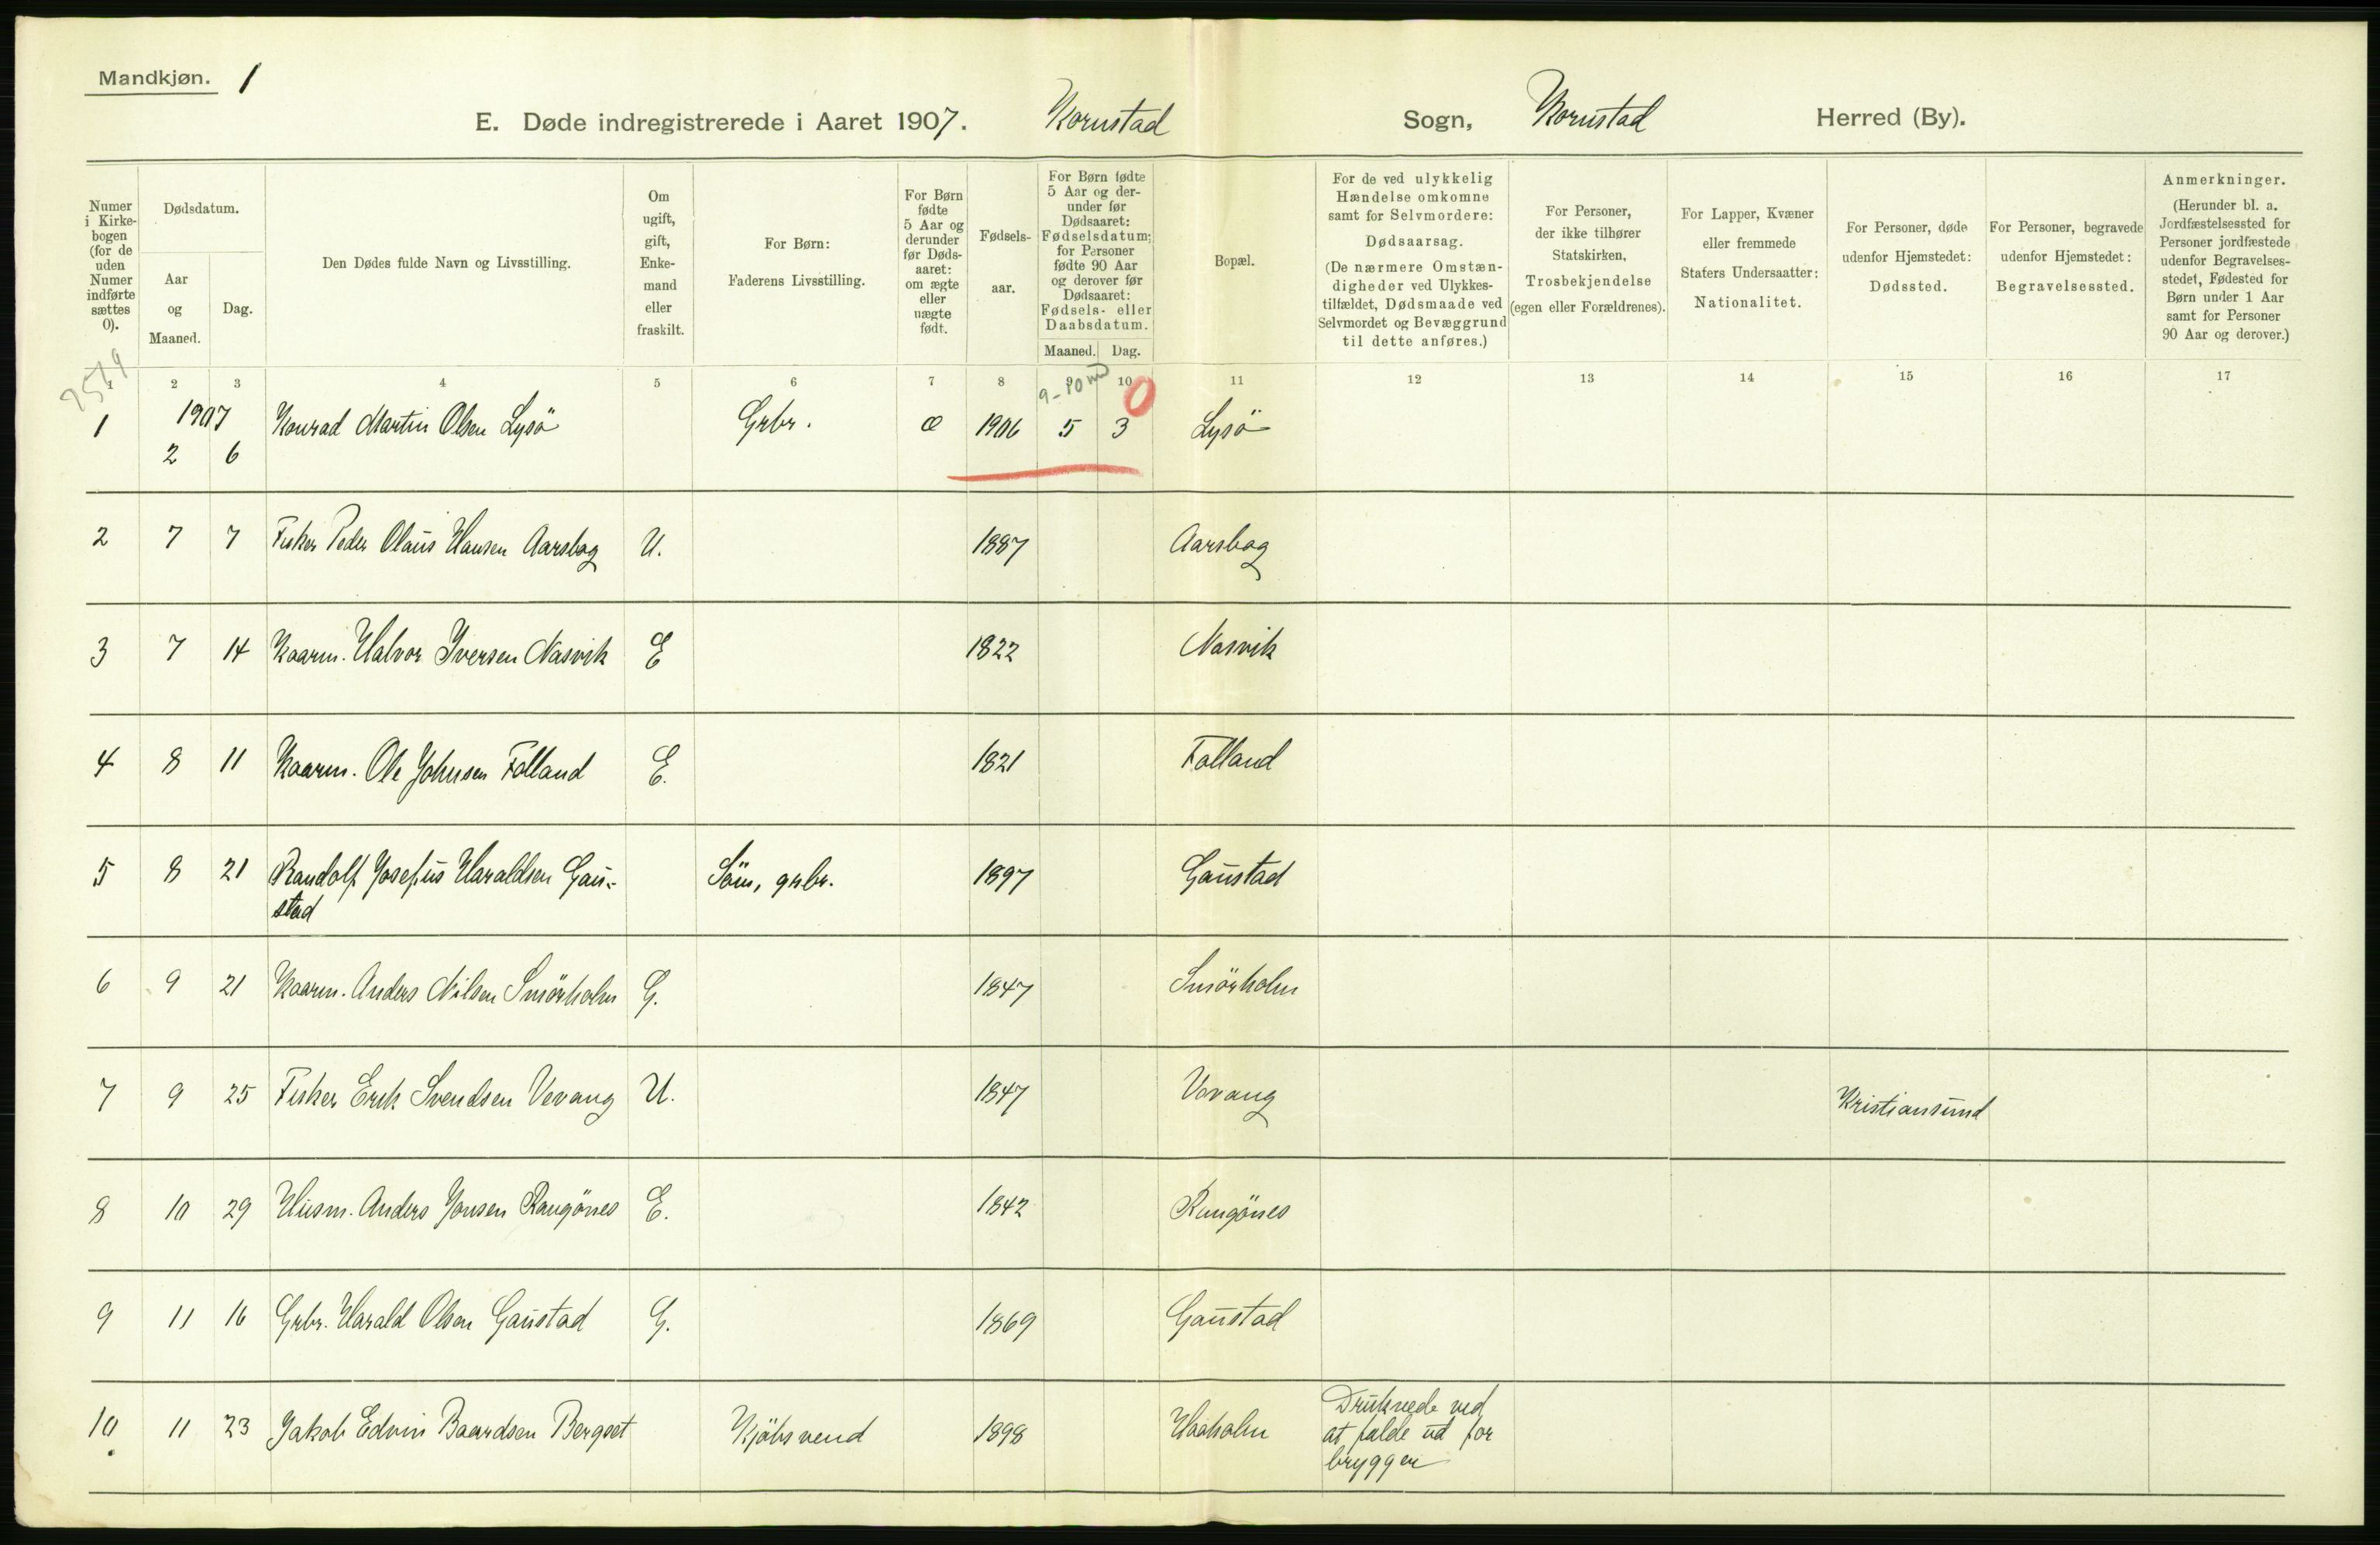 Mandkjøn. 1
E. Døde indregistrerede i Aaret 1907. Kornstad Sogn, Kornstad Herred (By).
Numer i Kirkebogen (for de uden Numer indførte sættes 0).
Dødsdatum.
Aar og Maaned.
Dag.
Den Dødes fulde Navn og Livsstilling.
Om ugift, gift, Enkemand eller fraskilt.
For Børn:
Faderens Livsstilling.
For Børn fødte 5 Aar og derunder før Dødsaaret: om ægte eller uægte født.
Fødselsaar.
For Børn fødte 5 Aar og derunder før Dødsaaret: Fødselsdatum; for Personer fødte 90 Aar og derover før Dødsaaret: Fødsels- eller Daabsdatum.
Maaned. Dag.
Bopæl.
For de ved ulykkelig Hændelse omkomne samt for Selvmordere: Dødsaarsag. (De nærmere Omstændigheder ved Ulykkestilfældet, Dødsmaade ved Selvmordet og Bevæggrund til dette anføres.)
For Personer, der ikke tilhører Statskirken, Trosbekjendelse (egen eller Forældrenes).
For Lapper, Kvæner eller fremmede Staters Undersaatter: Nationalitet.
For Personer, døde udenfor Hjemstedet: Dødssted.
For Personer, begravede udenfor Hjemstedet: Begravelsessted.
Anmerkninger. (Herunder bl. a. Jordfæstelsessted for Personer jordfæstede udenfor Begravelsesstedet, Fødested for Børn under 1 Aar samt for Personer 90 Aar og derover.)
1 2 3 4 5 6 7 8 9 10 11 12 13 14 15 16 17
9-10 md 0
1 1907 2 6 Konrad Martin Olsen Lysö Grbr. Æ 1906 5 3 Lysö
2 7 7 Fisker Peder Olaus Hansen Aarsbog U. 1887 Aarsbog
3 7 14 Kaarm. Halvor Iversen Nasvik E 1822 Nasvik
4 8 11 Kaarm. Ole Johnsen Folland E. 1821 Folland
5 8 21 Randolf Josefus Haraldsen Gau- Söm, grbr. 1897 Gaustad
stad
6 9 21 Kaarm. Anders Nilsen Smörholm G. 1847 Smörholm
7 9 25 Fisker Erik Svendsen Vevang U. 1847 Vevang Kristiansund
8 10 29 Husm. Anders Jonsen Rangönes E. 1842 Rangönes
9 11 16 Grbr. Harald Olsen Gaustad G. 1869 Gaustad
10 11 23 Jakob Edvin Baardsen Bergset Kjöbsvend 1898 Haaholm Druknede ved
at falde ud for
bryggen